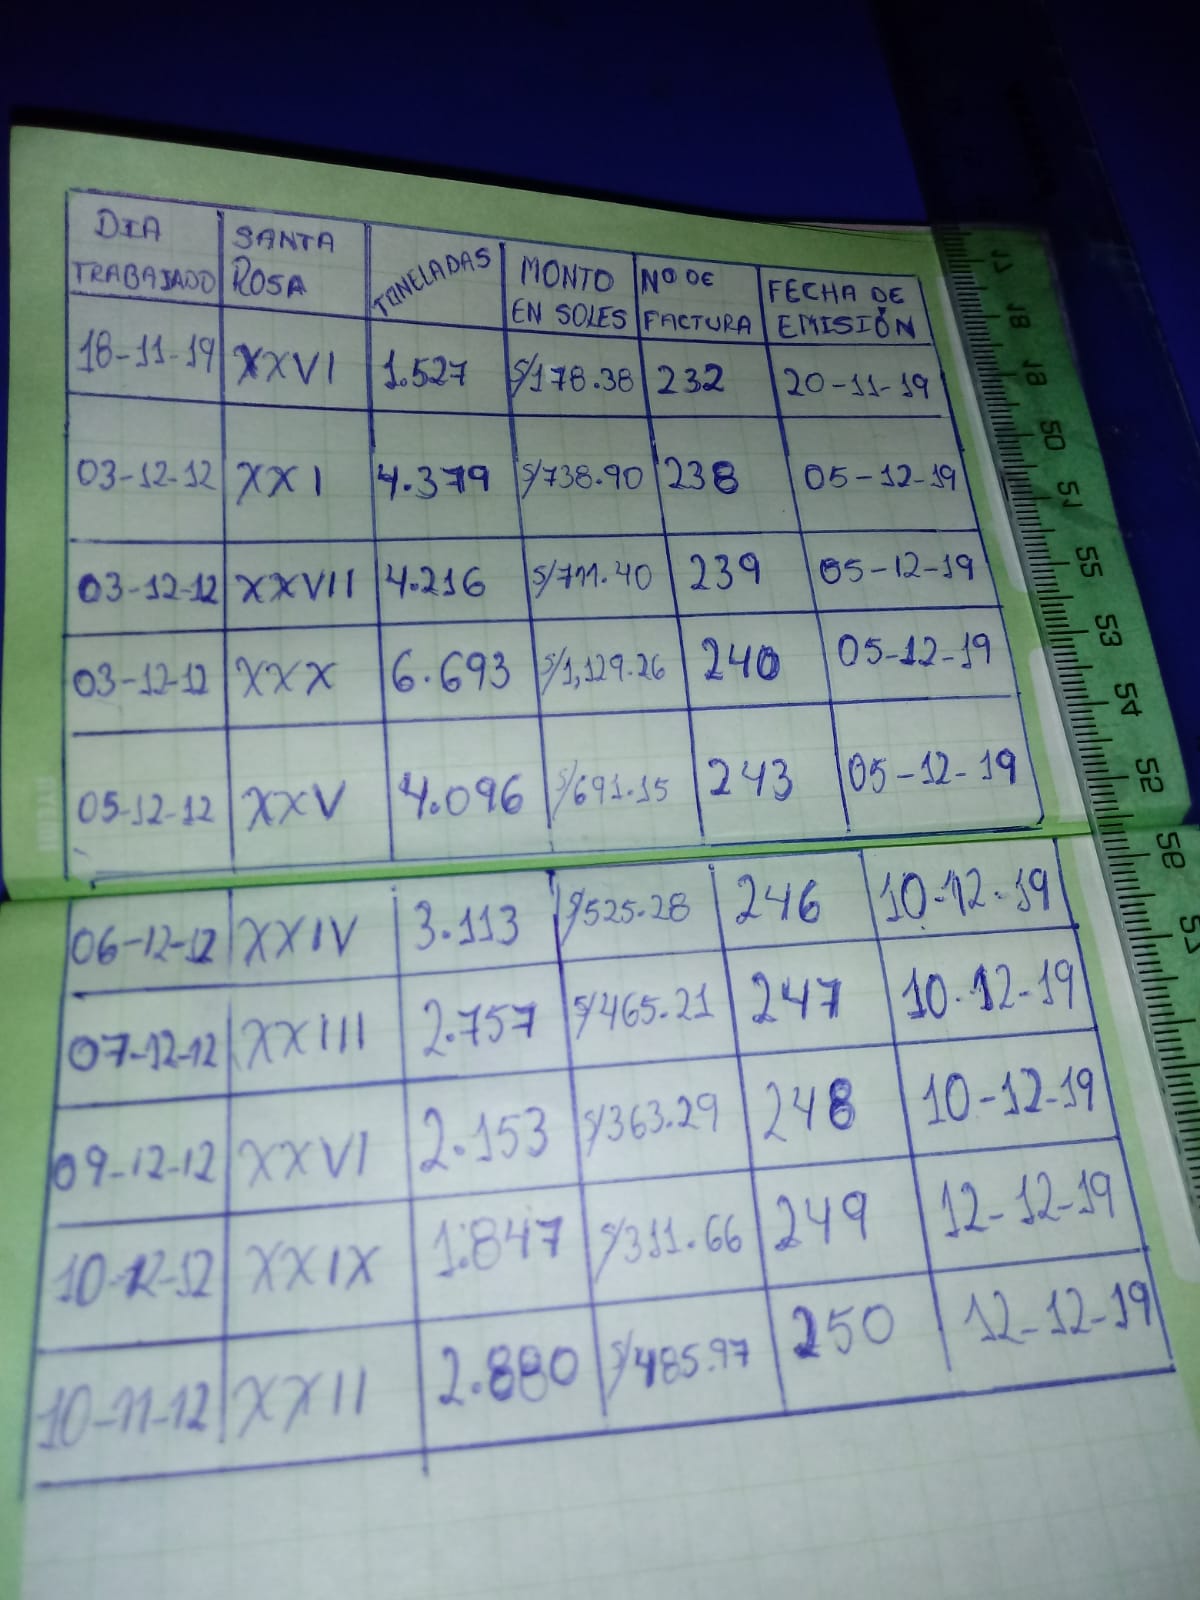 DIA TRABAJADO SANTA ROSA TONELADAS MONTO EN SOLES Nº DE FACTURA FECHA DE EMISIÓN
18-11-19 XXVI 1.527 S/178.38 232 20-11-19
03-12-12 XXI 4.379 S/738.90 238 05-12-19
03-12-12 XXVII 4.216 S/711.40 239 05-12-19
03-12-12 XXX 6.693 S/1,129.26 240 05-12-19
05-12-12 XXV 4.096 S/691.15 243 05-12-19
06-12-12 XXIV 3.113 S/525.28 246 10-12-19
07-12-12 XXIII 2.757 S/465.21 247 10-12-19
09-12-12 XXVI 2.153 S/363.29 248 10-12-19
10-12-12 XXIX 1.847 S/311.66 249 12-12-19
10-11-12 XXII 2.880 S/485.97 250 12-12-19
17
18
19
50
51
55
53
54
52
50